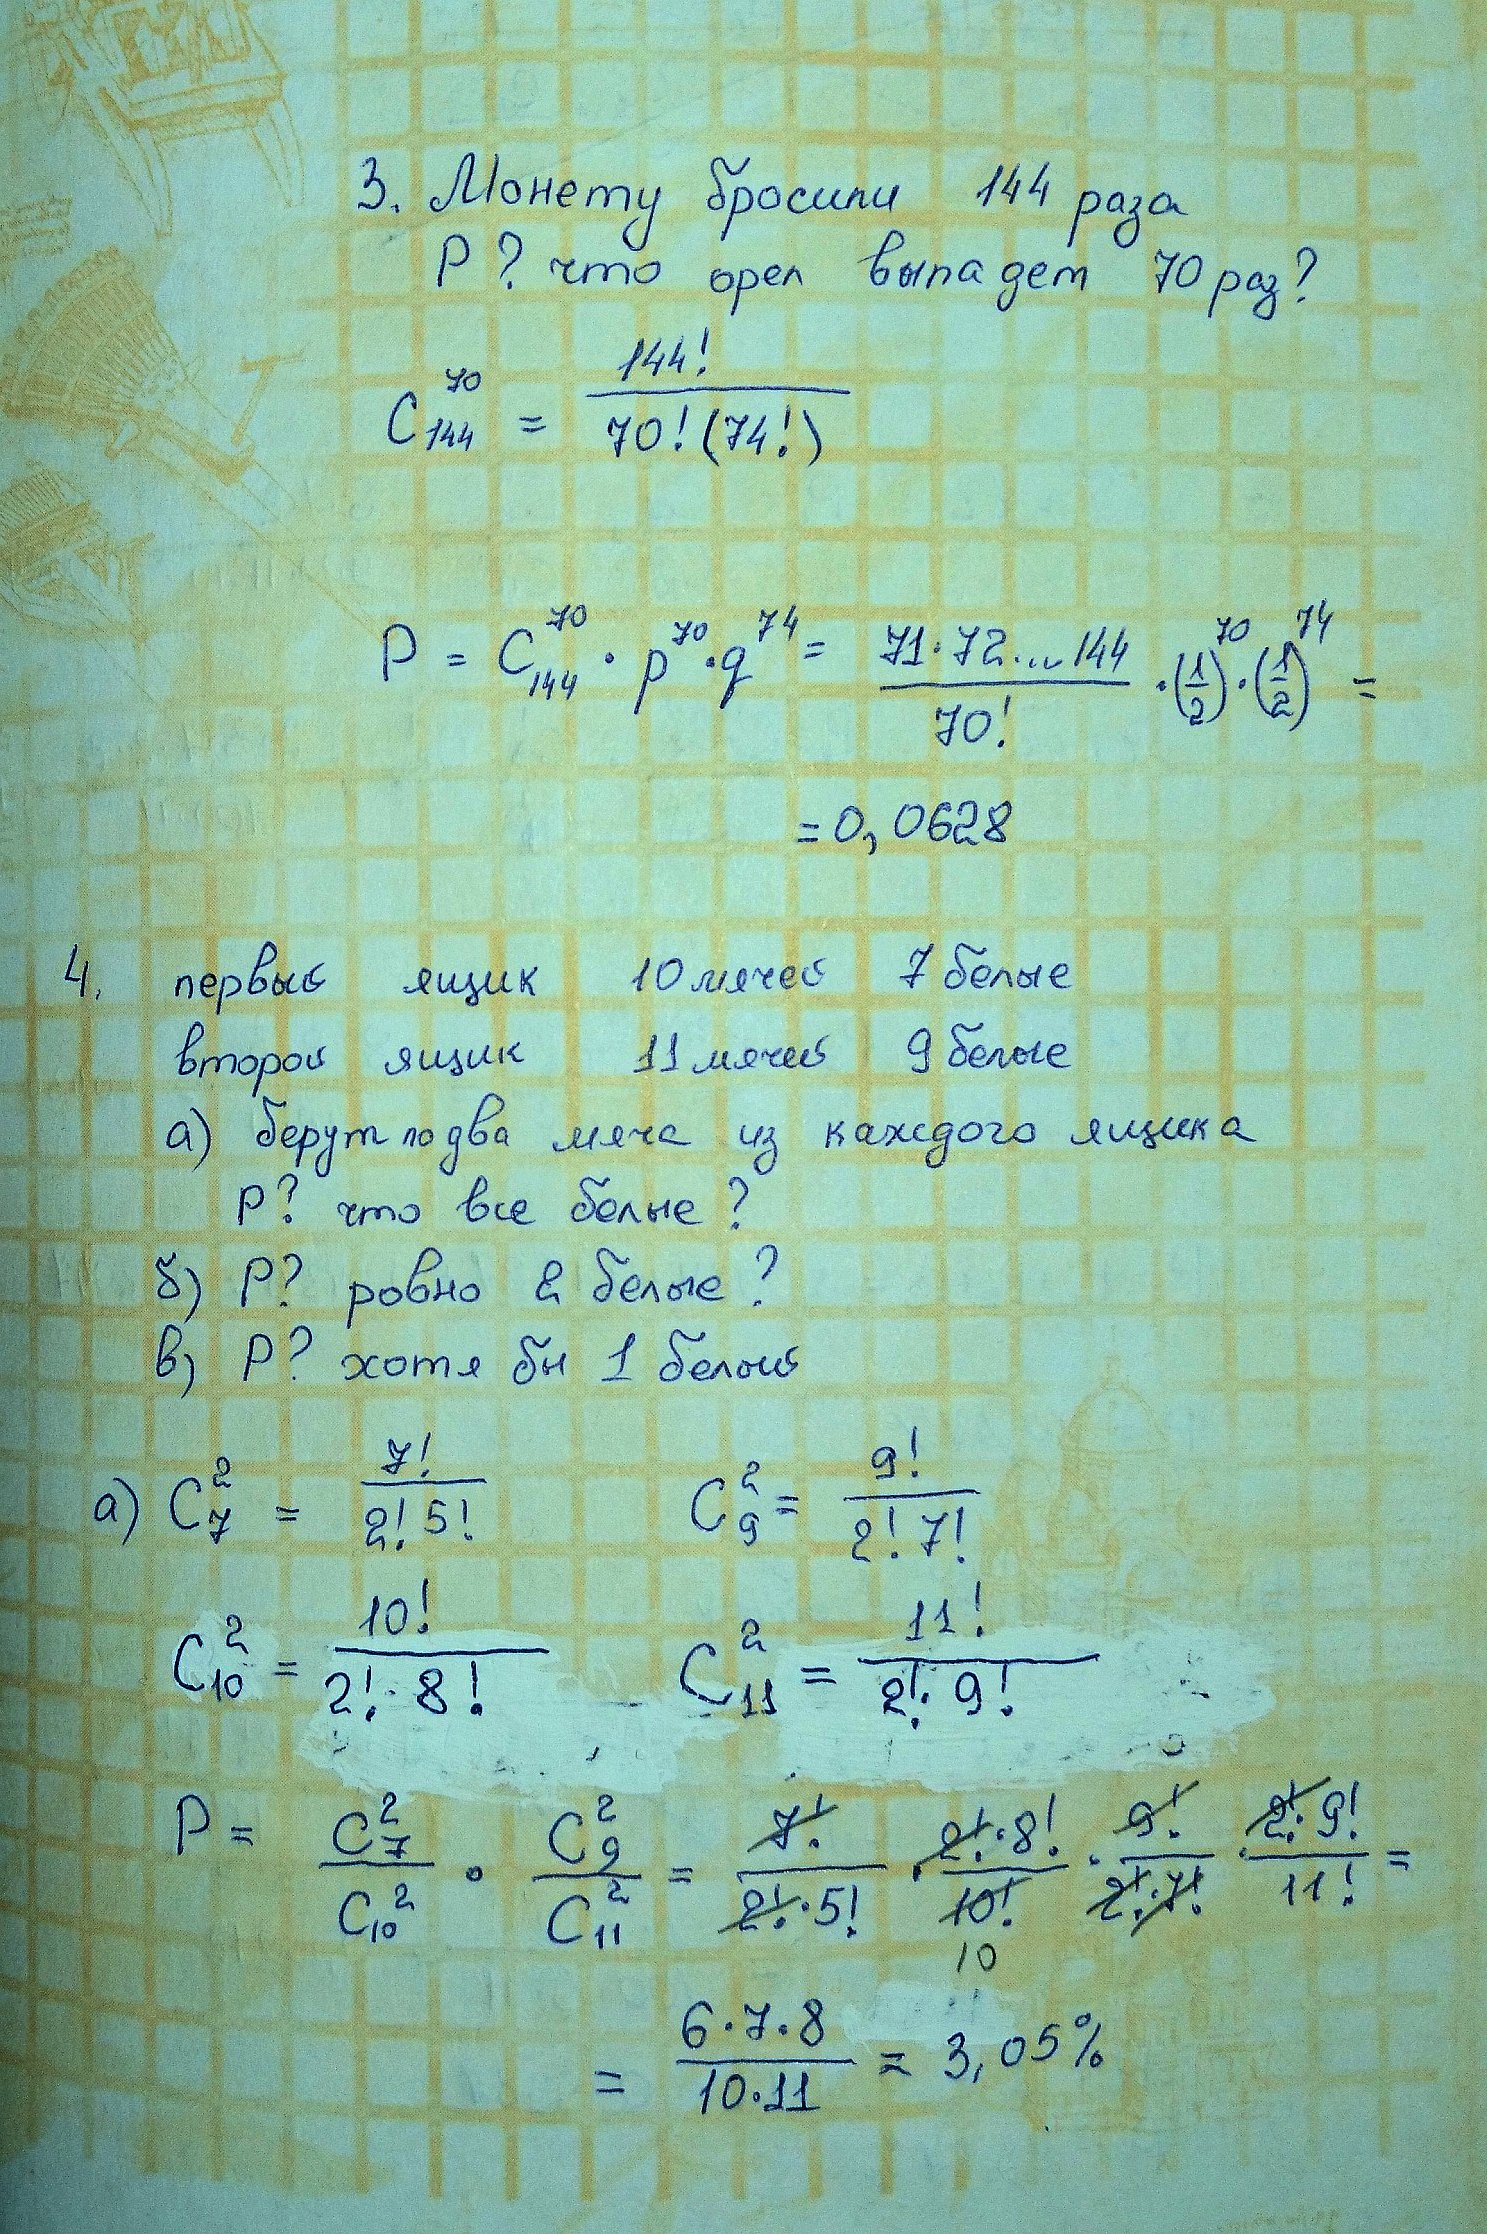 3. Монету бросили 144 раза
P? что орел выпадет 70 раз?
C₁₄₄⁷⁰ = 144! / 70!(74!)
P = C₁₄₄⁷⁰ · p⁷⁰ · q⁷⁴ = 71·72·...144 / 70! · (1/2)⁷⁰ · (1/2)⁷⁴ =
= 0,0628
4. первый ящик 10 мячей 7 белые
второй ящик 11 мячей 9 белые
а) берут по два мяча из каждого ящика
P? что все белые?
б) P? ровно 2 белые?
в) P? хотя бы 1 белый
а) C₇² = 7! / 2! 5! C₉² = 9! / 2! 7!
C₁₀² = 10! / 2!·8! C₁₁² = 11! / 2!·9!
P = C₇² / C₁₀² · C₉² / C₁₁² = 7! / 2!·5! · 2!·8! / 10! · 9! / 2!·7! · 2!·9! / 11! =
10
= 6·7·8 / 10·11 = 3,05%